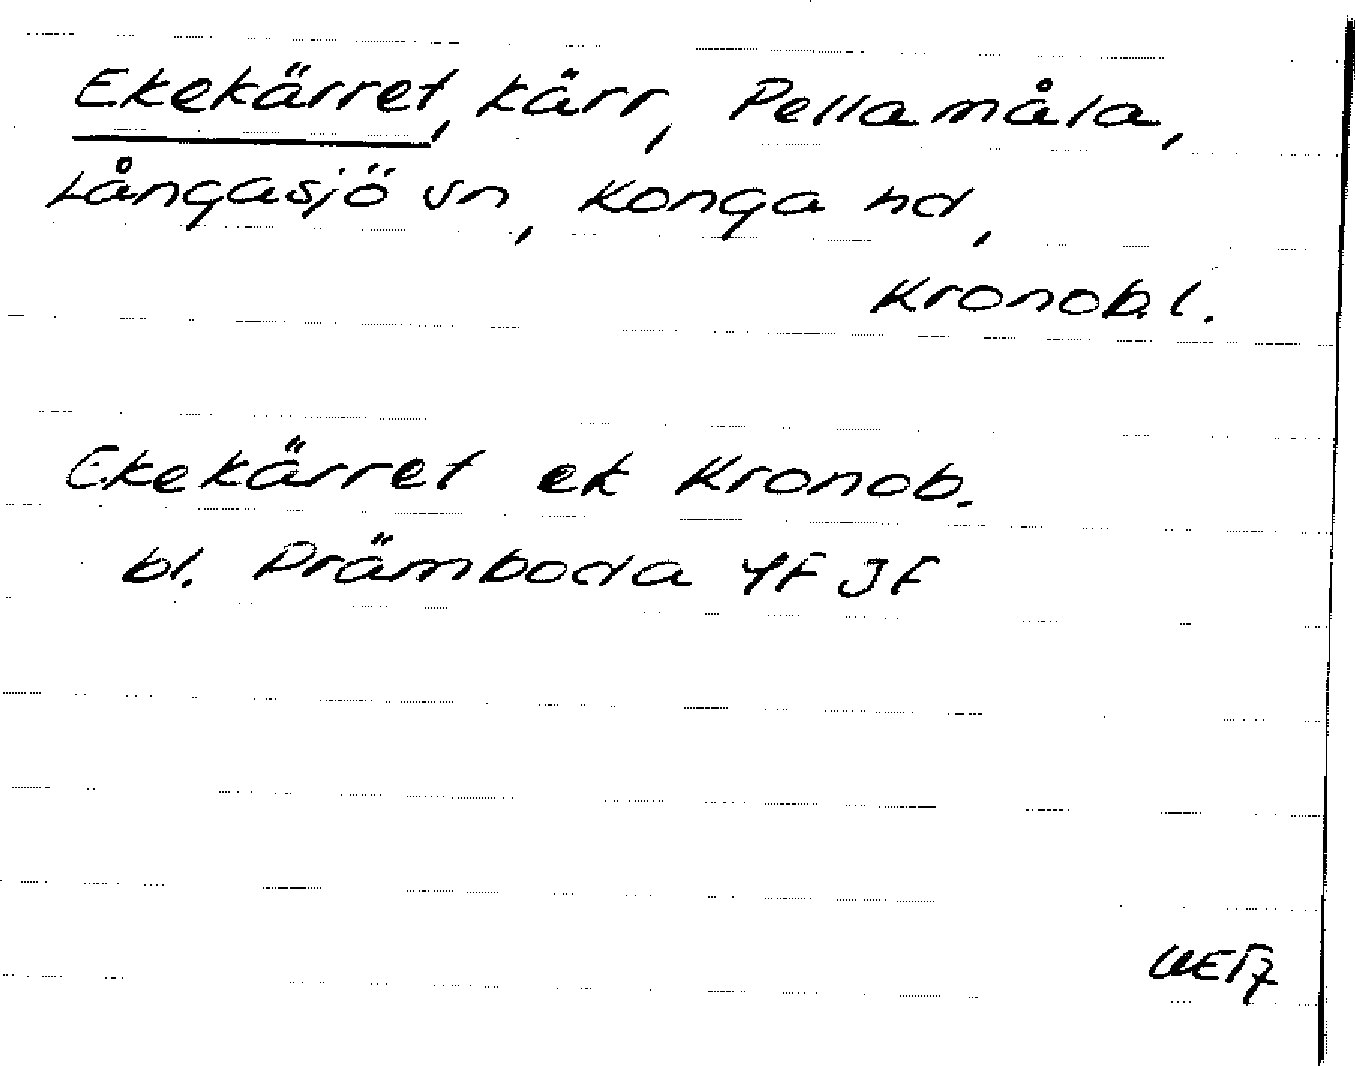 Ekekärret, kärr, Pellamåla,
Långasjö sn, Konga hd,
Kronob.l.
Ekekärret ek Kronob.
bl. Prämboda 4F JF